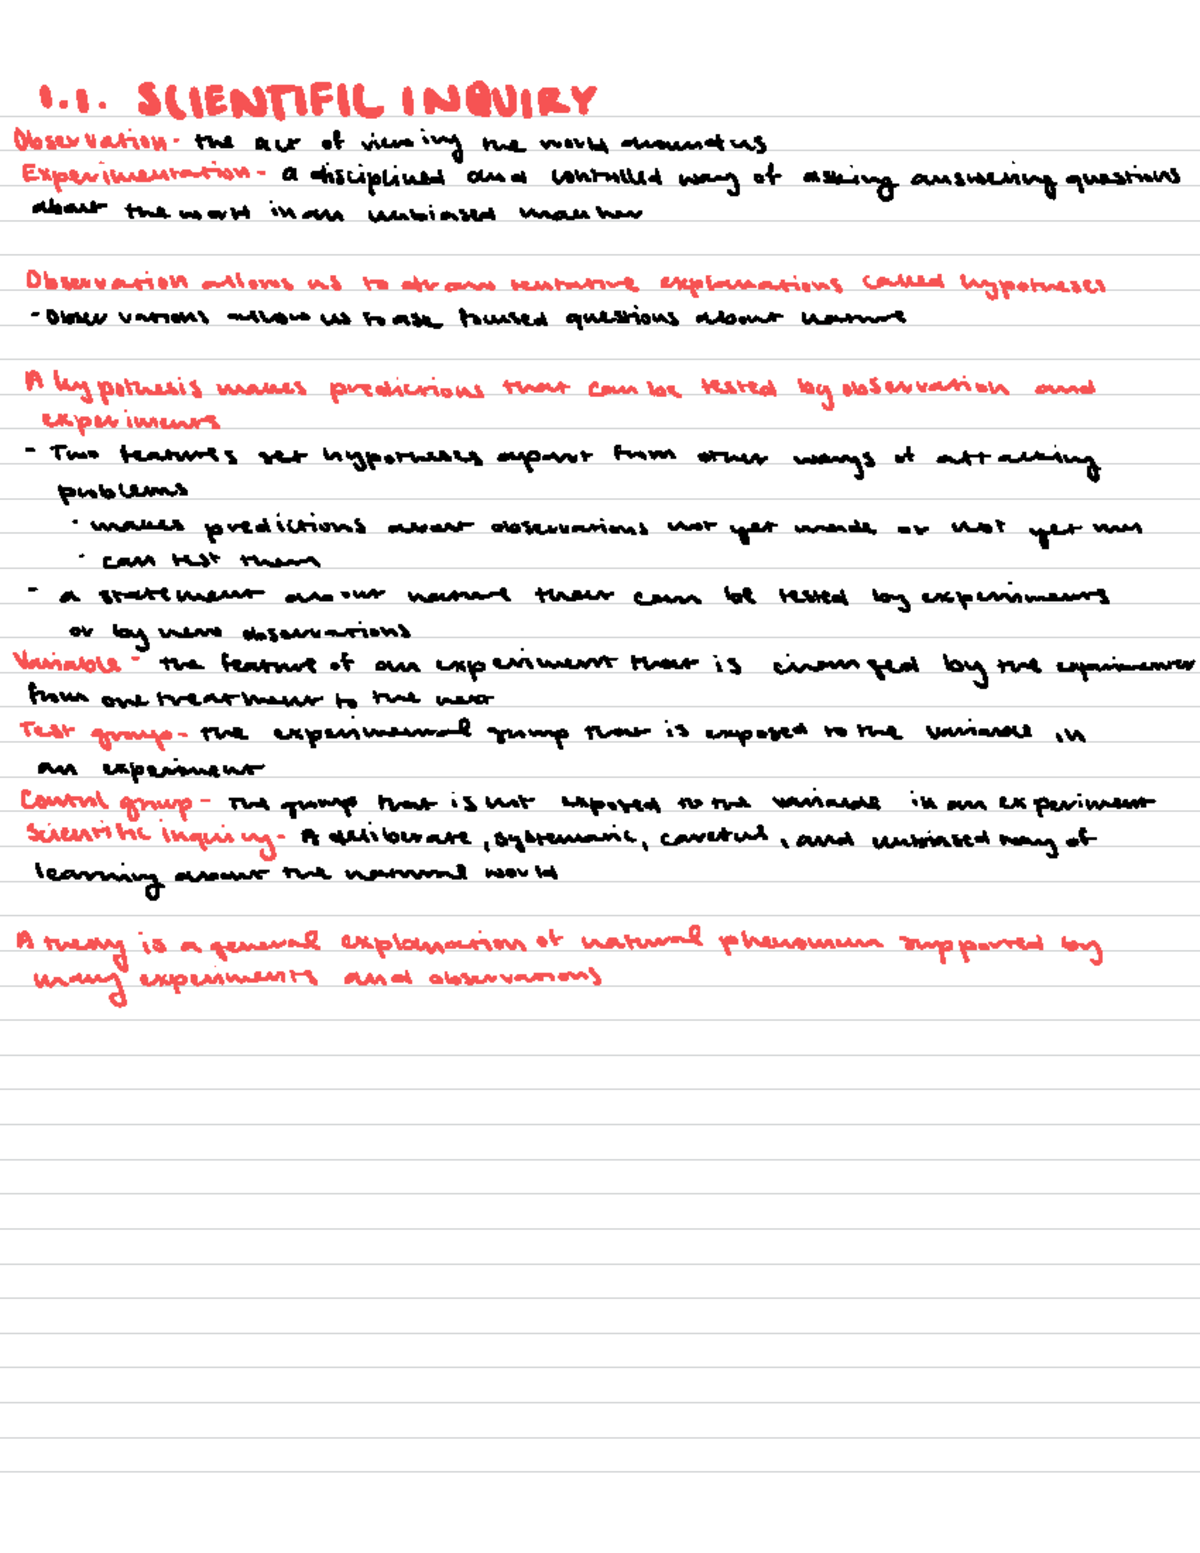 1.1. SCIENTIFIC INQUIRY
Observation - the act of viewing the world around us
Experimentation - a disciplined and controlled way of asking answering questions
about the world in an unbiased manner
Observation allows us to draw tentative explanations called hypotheses
- Observations allow us to ask focused questions about nature
A hypothesis makes predictions that can be tested by observation and
experiments
- Two features set hypotheses apart from other ways of attacking
problems
· makes predictions about observations not yet made or not yet run
· can test them
- a statement about nature that can be tested by experiments
or by new observations
Variable - the feature of an experiment that is changed by the experimenter
from one treatment to the next
Test group - the experimental group that is exposed to the variable in
an experiment
Control group - the group that is not exposed to the variable in an experiment
Scientific inquiry - A deliberate, systematic, careful, and unbiased way of
learning about the natural world
A theory is a general explanation of natural phenomena supported by
many experiments and observations